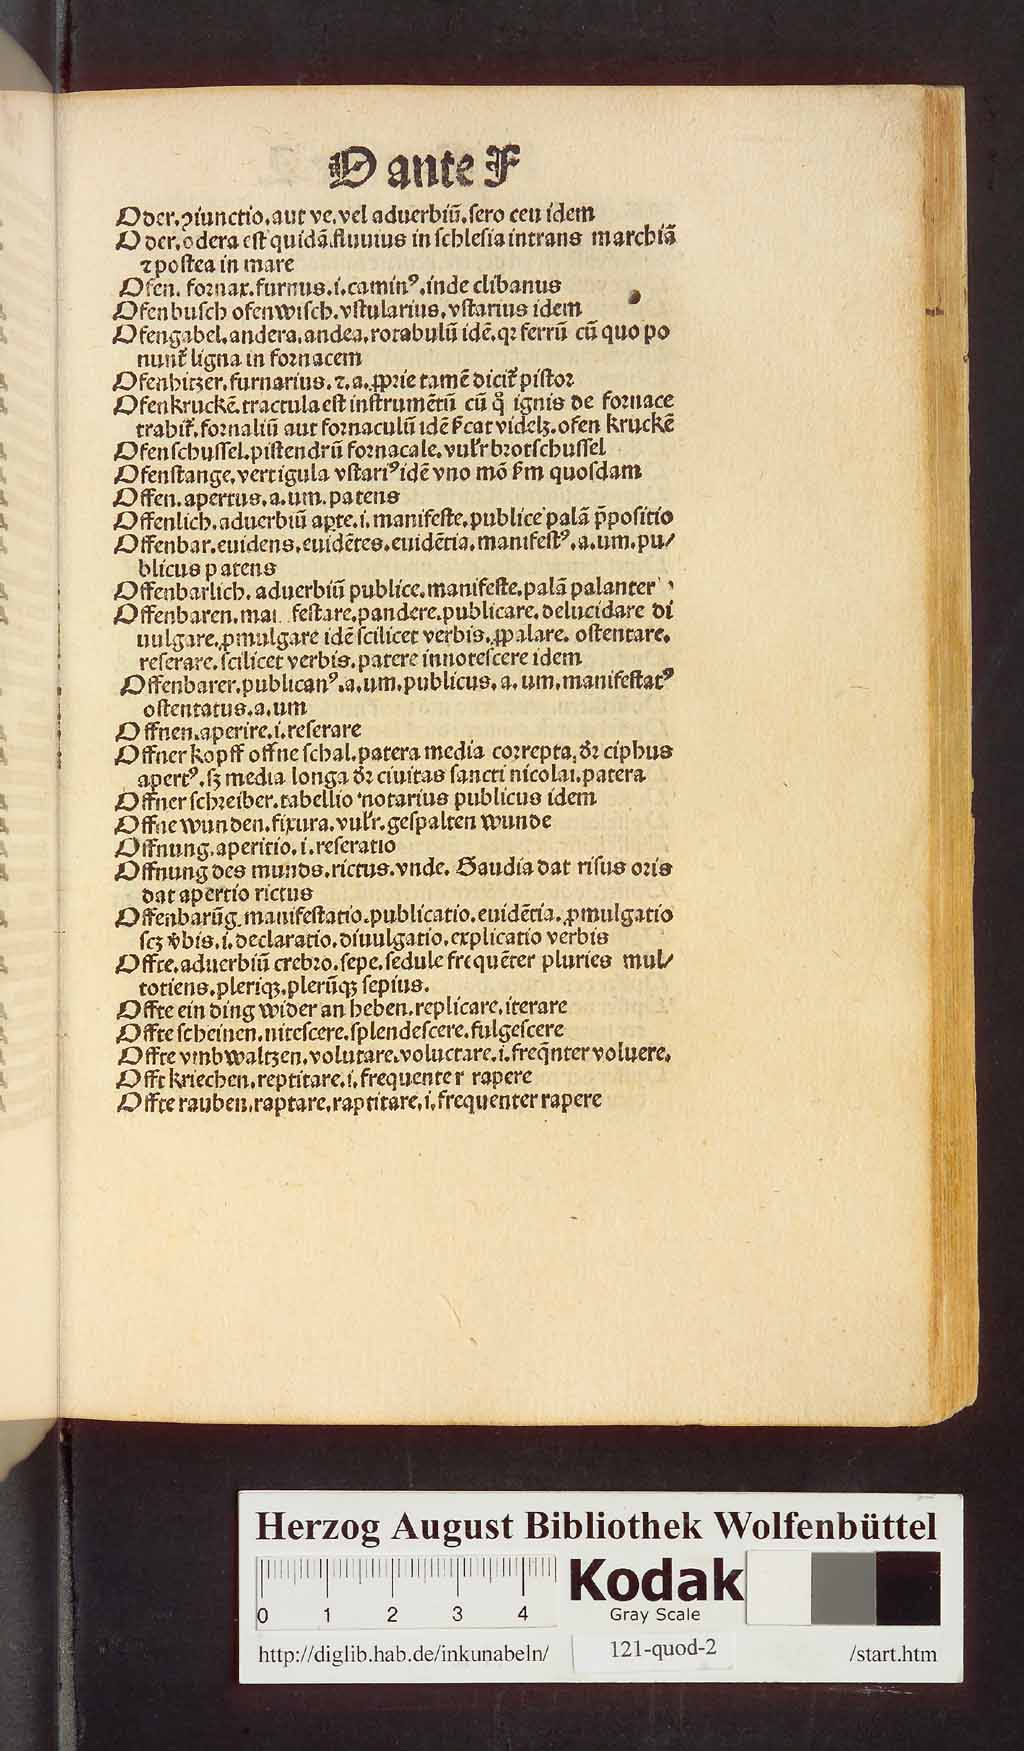 O ante F
Oder.ꝯiunctio.aut ve.vel aduerbiū.sero ceu idem
Oder.odera est quidā fluuius in schlesia intrans marchiā
⁊ postea in mare
Ofen. fornax.furnus.i.caminꝰ.inde clibanus
Ofenbusch ofenwisch.vstularius.vstarius idem
Ofengabel.andera.andea.rotabulū idē.qꝛ ferrū cū quo po
nunt᷑ ligna in fornacem
Ofenhitzer.furnarius.⁊.a.ꝓprie tamē dicit᷑ pistoꝛ
Ofenkruckē.tractula est instrumētū cū qͦ ignis de fornace
trahit᷑.fornaliū aut fornaculū idē ẜcat videlꝫ.ofen kruckē
Ofenschussel.pistendrū fornacale.vul'r brotschussel
Ofenstange.vertigula vstariꝰ idē vno mō ẜm quosdam
Offen.apertus.a.um.patens
Offenlich.aduerbiū aꝑte.i.manifeste.publice palā p̄positio
Offenbar.euidens.euidētes.euidētia.manifestꝰ.a.um.pu/
blicus patens
Offenbarlich.aduerbiū publice.manifeste.palā palanter
Offenbaren.mai festare.pandere.publicare.delucidare di
uulgare.ꝓmulgare idē scilicet verbis.ꝓpalare.ostentare.
reserare.scilicet verbis.patere innotescere idem
Offenbarer.publicanꝰ.a.um.publicus.a.um.manifestatꝰ
ostentatus.a.um
Offnen.aperire.i.reserare
Offner kopff offne schal.patera media correpta.dꝛ ciphus
apertꝰ.sꝫ media longa dꝛ ciuitas sancti nicolai.patera
Offner schreiber.tabellio notarius publicus idem
Offne wunden.fixura.vul'r.gespalten wunde
Offnung.aperitio.i.reseratio
Offnung des munds.rictus.vnde. Gaudia dat risus oꝛis
dat apertio rictus
Offenbarūg.manifestatio.publicatio.euidētia.ꝓmulgatio
scꝫ v̄bis.i.declaratio.diuulgatio.explicatio verbis
Offte.aduerbiū crebꝛo.sepe.sedule frequēter pluries mul/
totiens.pleriqꝫ.plerūqꝫ sepius.
Offte ein ding wider an heben.replicare.iterare
Offte scheinen.nitescere.splendescere.fulgescere
Offte vmbwaltzen.volutare.voluctare.i.freq̄nter voluere.
Offt kriechen.reptitare.i.frequenter rapere
Offte rauben.raptare.raptitare.i.frequenter rapere
Herzog August Bibliothek Wolfenbüttel
0 1 2 3 4
Kodak
Gray Scale
http://diglib.hab.de/inkunabeln/ 121-quod-2 /start.htm